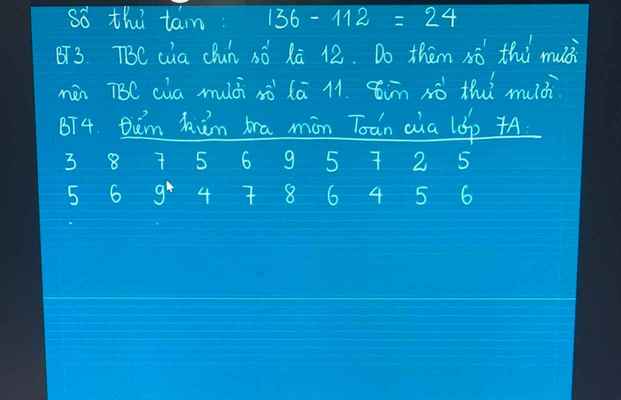 Số thứ tám : 136 - 112 = 24
BT3. TBC của chín số là 12. Do thêm số thứ mười
nên TBC của mười số là 11. Tìm số thứ mười.
BT4. Điểm kiểm tra môn Toán của lớp 7A:
3 8 7 5 6 9 5 7 2 5
5 6 9 4 7 8 6 4 5 6